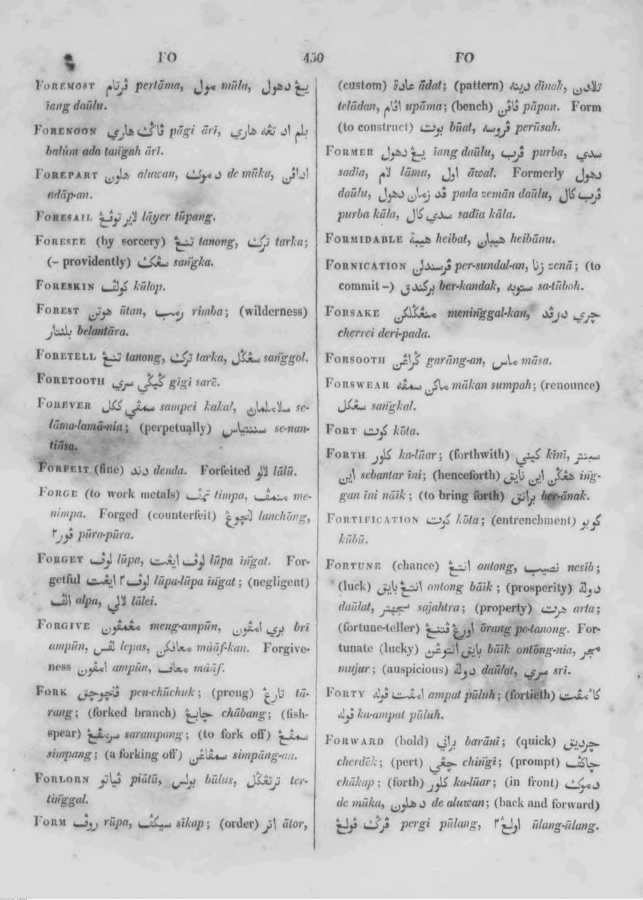 FO 450 FO
FOREMOST ڤرتام pertāma, مول mūla, يڠ دهول
īang daūlu.
FORENOON ڤاݢي هاري pāgi ārī, بلم اد تڠه هاري
balūm ada tan͠gah ārī.
FOREPART هلون aluwan, د موك de mūka, اداڤن
adāp-an.
FORESAIL لاير توڤڠ lāyer tūpang.
FORESEE (by sorcery) تنڠ tanong, ترك tarka;
(– providently) سڠک san͠gka.
FORESKIN كولڤ kūlop.
FOREST هوتن ūtan, رمب rimba; (wilderness)
بلنتار belantāra.
FORETELL تنڠ tanong, ترك tarka, سڠݢل san͠ggol.
FORETOOTH ݢيݢي سري gigi sarē.
FOREVER سمڤي ككل sampei kakal, سلامامان se-
lāma-lamā-nia; (perpetually) سننتياس se-nan-
tiāsa.
FORFEIT (fine) دند denda. Forfeited لالو lālū.
FORGE (to work metals) تمڤ timpa, منمڤ me-
nimpa. Forged (counterfeit) لنچوڠ lanchōng,
ڤور٢ pūra-pūra.
FORGET لوڤ lūpa, لوڤ ايڠت lūpa in͠gat. For-
getful لوڤ٢ ايڠت lūpa-lūpa in͠gat; (negligent)
الڤ alpa, لالي lālei.
FORGIVE مڠمڤون meng-ampūn, بري امڤون brī
ampūn, لڤس lepas, معافكن māāf-kan. Forgive-
ness امڤون ampūn, معاف māāf.
FORK ڤنچوچق pen-chūchuk; (prong) تارڠ tā-
rang; (forked branch) چابڠ chābang; (fish-
spear) سرمڤڠ sarampang; (to fork off) سمڤڠ
simpang; (a forking off) سمڤاڠن simpāng-an.
FORLORN ڤياتو piātū, بولس būlus, ترتڠݢل ter-
tin͠ggal.
FORM روڤ rūpa, سيكڤ sīkap; (order) اتر ātor,
(custom) عادة ādat; (pattern) دينه dīnah, تلادن
telādan, اڤام upāma; (bench) ڤاڤن pāpan. Form
(to construct) بوت būat, ڤروسه perūsah.
FORMER يڠ دهول īang daūlu, ڤرب purba, سدي
sadīa, لام lāma, اول āwal. Formerly دهول
daūlu, ڤد زمان دهول pada zemān daūlu, ڤرب كال
purba kāla, سدي كال sadīa kāla.
FORMIDABLE هيبة heibat, هيبان heibānu.
FORNICATION ڤرسندلن per-sundal-an, زنا zenā; (to
commit –) بركندق ber-kandak, ستوبه sa-tūboh.
FORSAKE منڠݢلكن menin͠ggal-kan, چري درڤد
cherrei deri-pada.
FORSOOTH ݢراڠن garāng-an, ماس māsa.
FORSWEAR ماكن سمڤه mākan sumpah; (renounce)
سڠكل san͠gkal.
FORT كوت kōta.
FORTH كلور ka-lūar; (forthwith) كيني kīnī, سبنتر
اين sebantar īni; (henceforth) هڠݢن اين نايق in͠g-
gan īni nāik; (to bring forth) برانق ber-ānak.
FORTIFICATION كوت kōta; (entrenchment) كوبو
kūbū.
FORTUNE (chance) انتڠ ontong, نصيب nesīb;
(luck) انتڠ بايق ontong bāik; (prosperity) دولة
daūlat, سجهتر sajahtra; (property) هرت arta;
(fortune-teller) اورڠ ڤتنڠ ōrang pe-tanong. For-
tunate (lucky) بايق انتوڠن bāik ontōng-nia, مجر
mujur; (auspicious) دولة daūlat, سري srī.
FORTY امڤت ڤوله ampat pūluh; (fortieth) كامڤت
ڤوله ka-ampat pūluh.
FORWARD (bold) براني barānī; (quick) چرديق
cherdēk; (pert) چڠي chin͠gi; (prompt) چاكڤ
chākap; (forth) كلور ka-lūar; (in front) د موك
de mūka, د هلون de aluwan; (back and forward)
ڤرݢ ڤولڠ pergi pūlang, اولڠ٢ ūlang-ūlang.